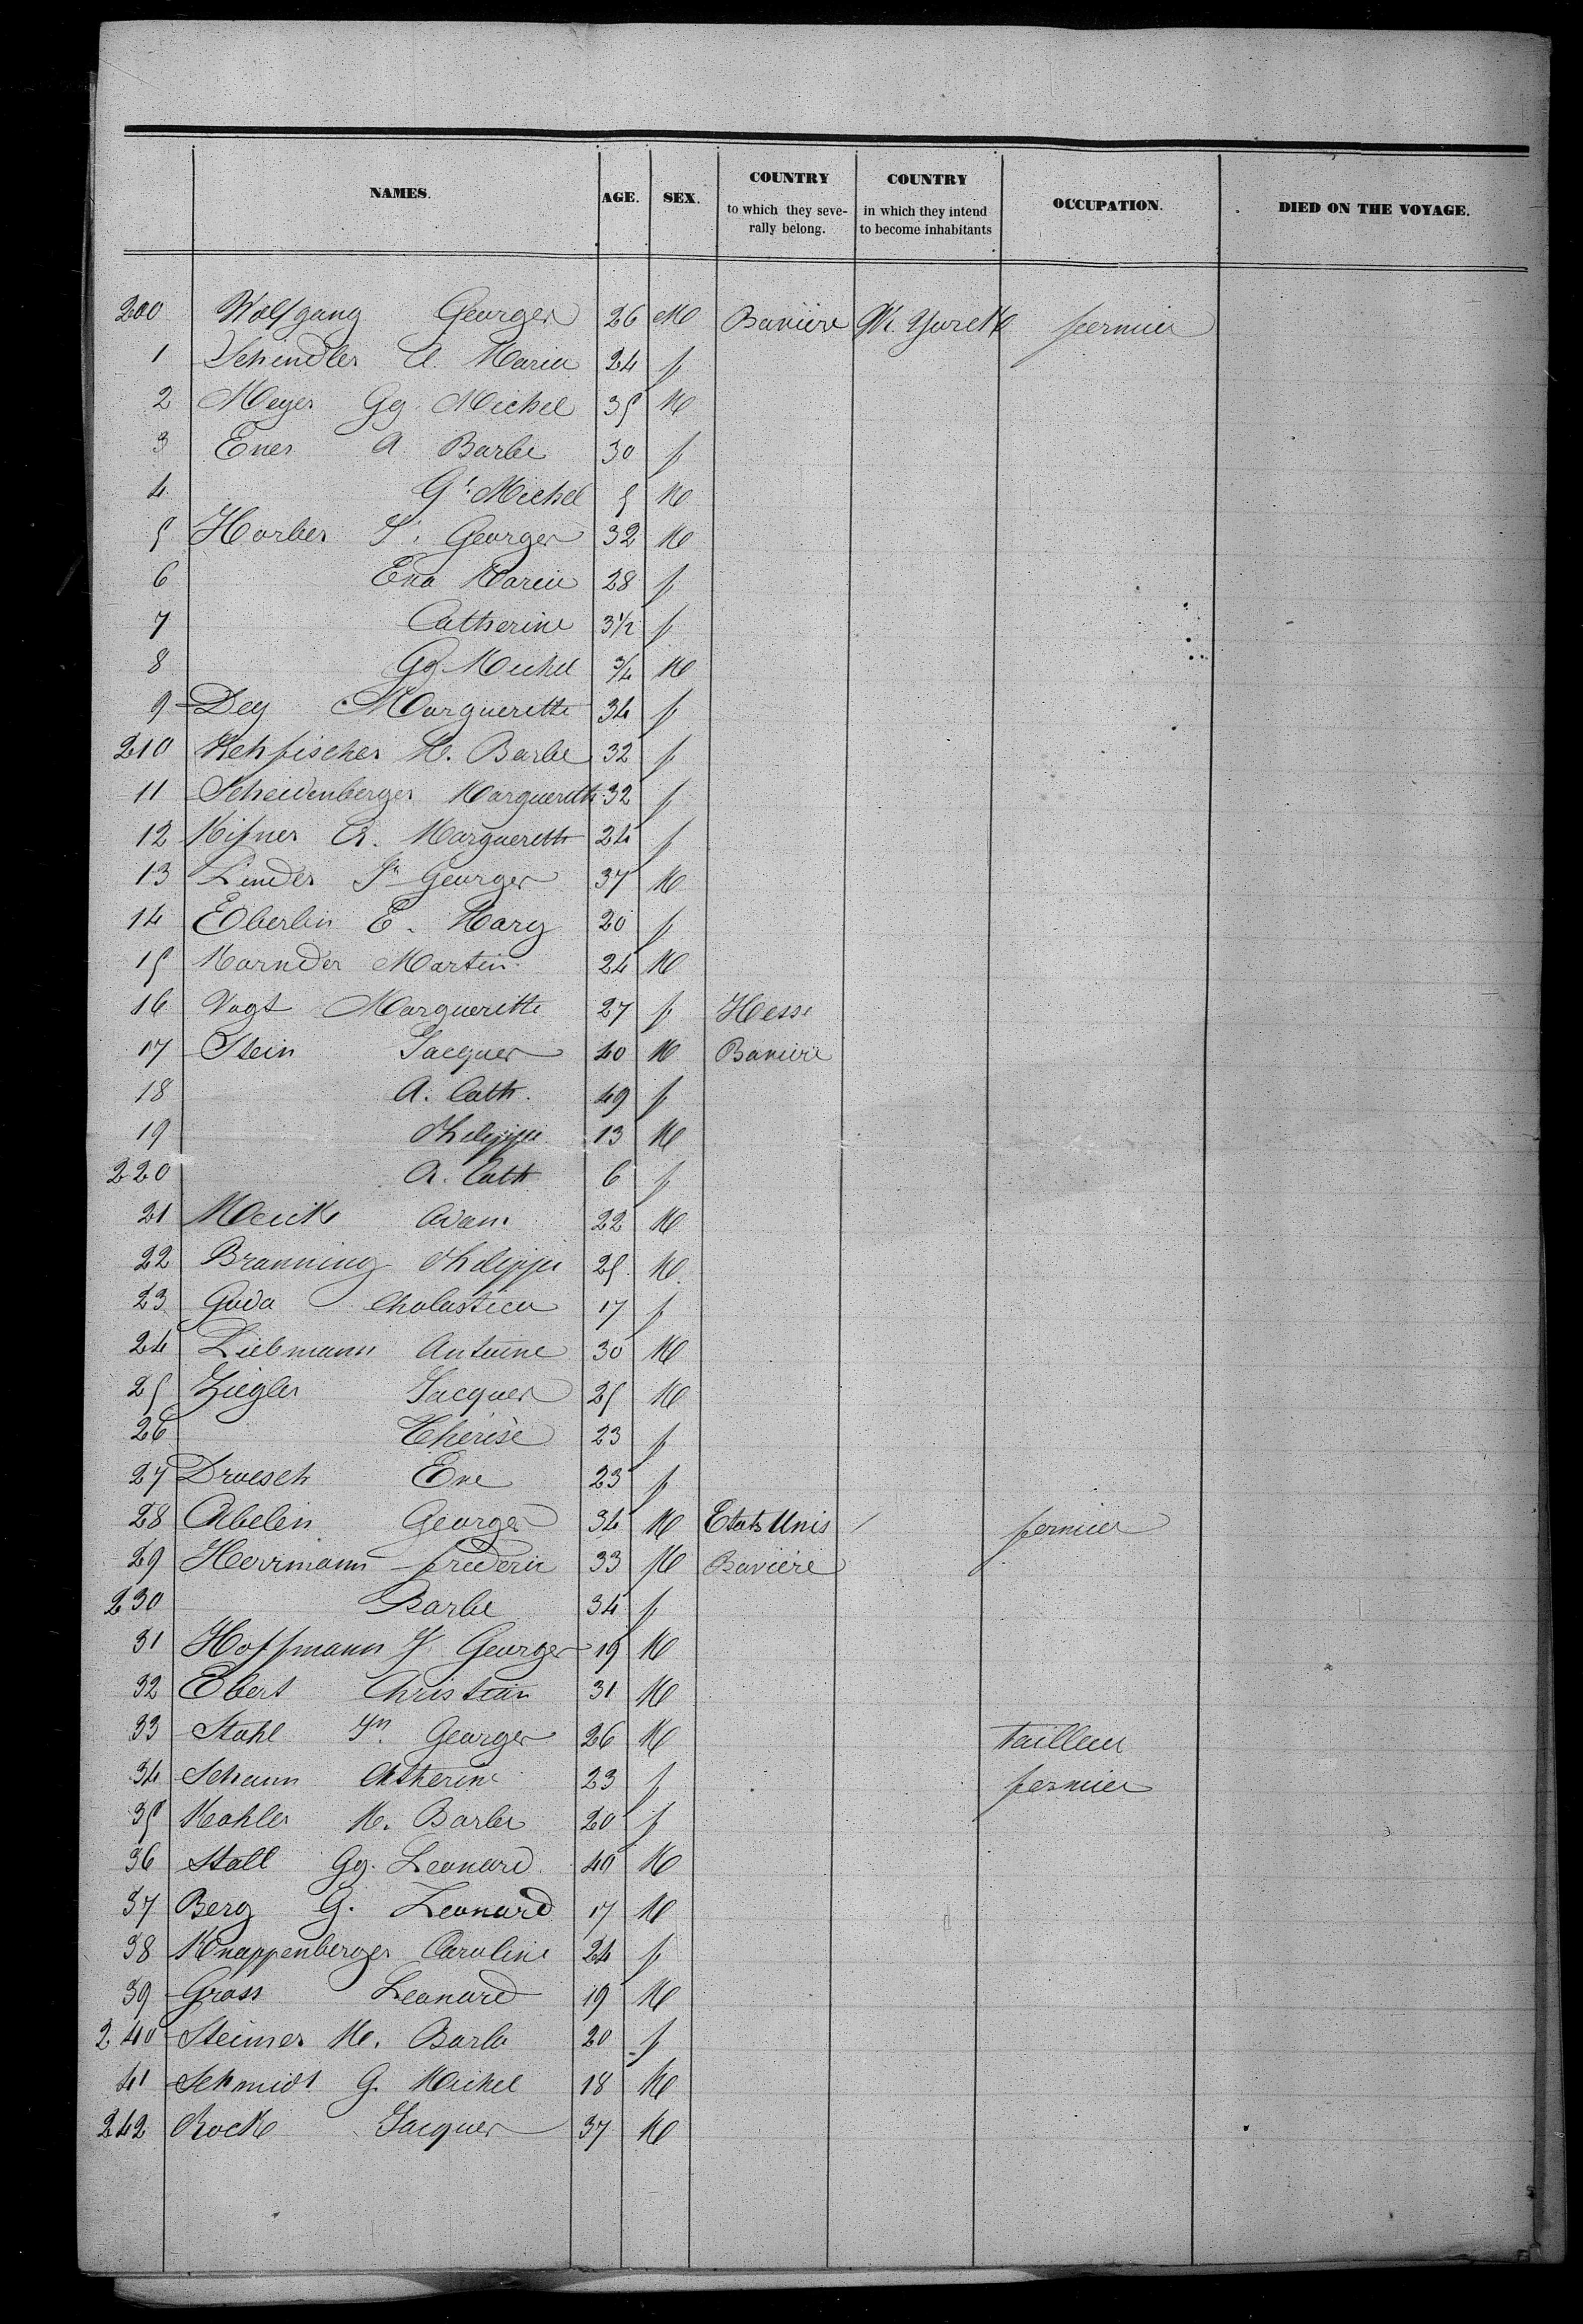 NAMES. AGE. SEX. COUNTRY to which they seve- rally belong. COUNTRY in which they intend to become inhabitants OCCUPATION. DIED ON THE VOYAGE.
200 Wolfgang Georges 26 M Bavière N. Yorck fermier
1 Schindler A. Maria 24 f
2 Meyer Gg. Michel 35 M
3 Ener A Barbe 30 f
4 Gg. Michel 5 M
5 Horber J. Georges 32 M
6 Eva Maria 28 f
7 Catherine 3 1/2 f
8 Gg. Michel 3/4 M
9 Dey Marguerette 34 f
210 Rehfischer M. Barbe 32 f
11 Scheidenberger Marguereth 32 f
12 Kifner A. Marguereth 24 f
13 Linder Jn Georges 37 M
14 Eberlin E. Marg 20 f
15 Marnder Martin 24 M
16 Vogt Marguerette 27 f Hesse
17 Stein Jacques 40 M Bavière
18 A. Cath. 49 f
19 Philippe 13 M
220 A. Cath 6 f
21 Merck Adam 22 M
22 Branning Philippe 25 M.
23 Goda Cholastica 17 f
24 Liebmann Antoine 30 M
25 Ziegler Jacques 25 M
26 Thérèse 23 f
27 Droesch Eve 23 f
28 Abelein Georges 34 M Etats Unis fermier
29 Herrmann frederic 33 M Bavière
230 Barbe 34 f
31 Hoffmann J. Georges 19 M
32 Ebert Christian 31 M
33 Stahl Jn. Georges 26 M tailleur
34 Schaun Catherine 23 f fermier
35 Kohler M. Barbe 20 f
36 Stall Gg. Leonard 40 M
37 Berg G. Leonard 17 M
38 Knappenberger Caroline 24 f
39 Grass Leonard 19 M
240 Steimer M. Barbe 20 f
41 Schmidt G. Michel 18 M
242 Rock Jacques 37 M